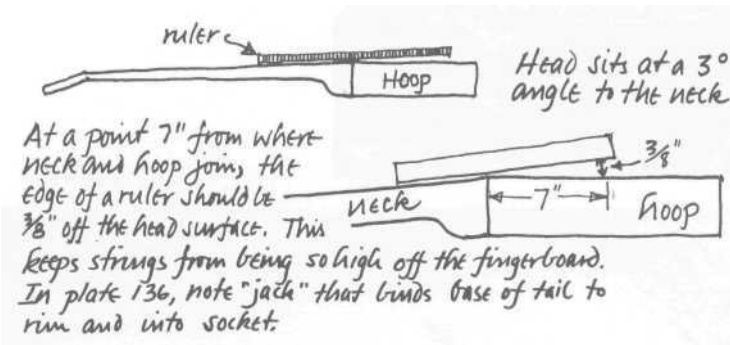 ruler
Hoop
Head sits at a 3°
angle to the neck
At a point 7" from where
neck and hoop join, the
edge of a ruler should be
3/8" off the head surface. This
keeps strings from being so high off the fingerboard.
In plate 136, note "jack" that binds base of tail to
rim and into socket.
3/8"
neck
7"
hoop